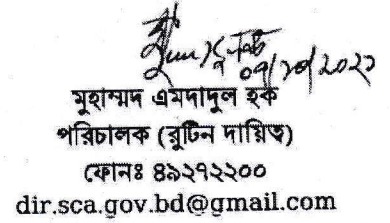 ০৭/১০/২০২১
মুহাম্মদ এমদাদুল হক
পরিচালক (রুটিন দায়িত্ব)
ফোনঃ ৪৯২৭২২০০
dir.sca.gov.bd@gmail.com